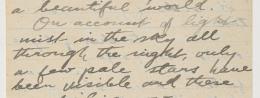 a beautiful world.
On account of light
mist in the sky all
through the night, only
a few pale stars have
been visible and these